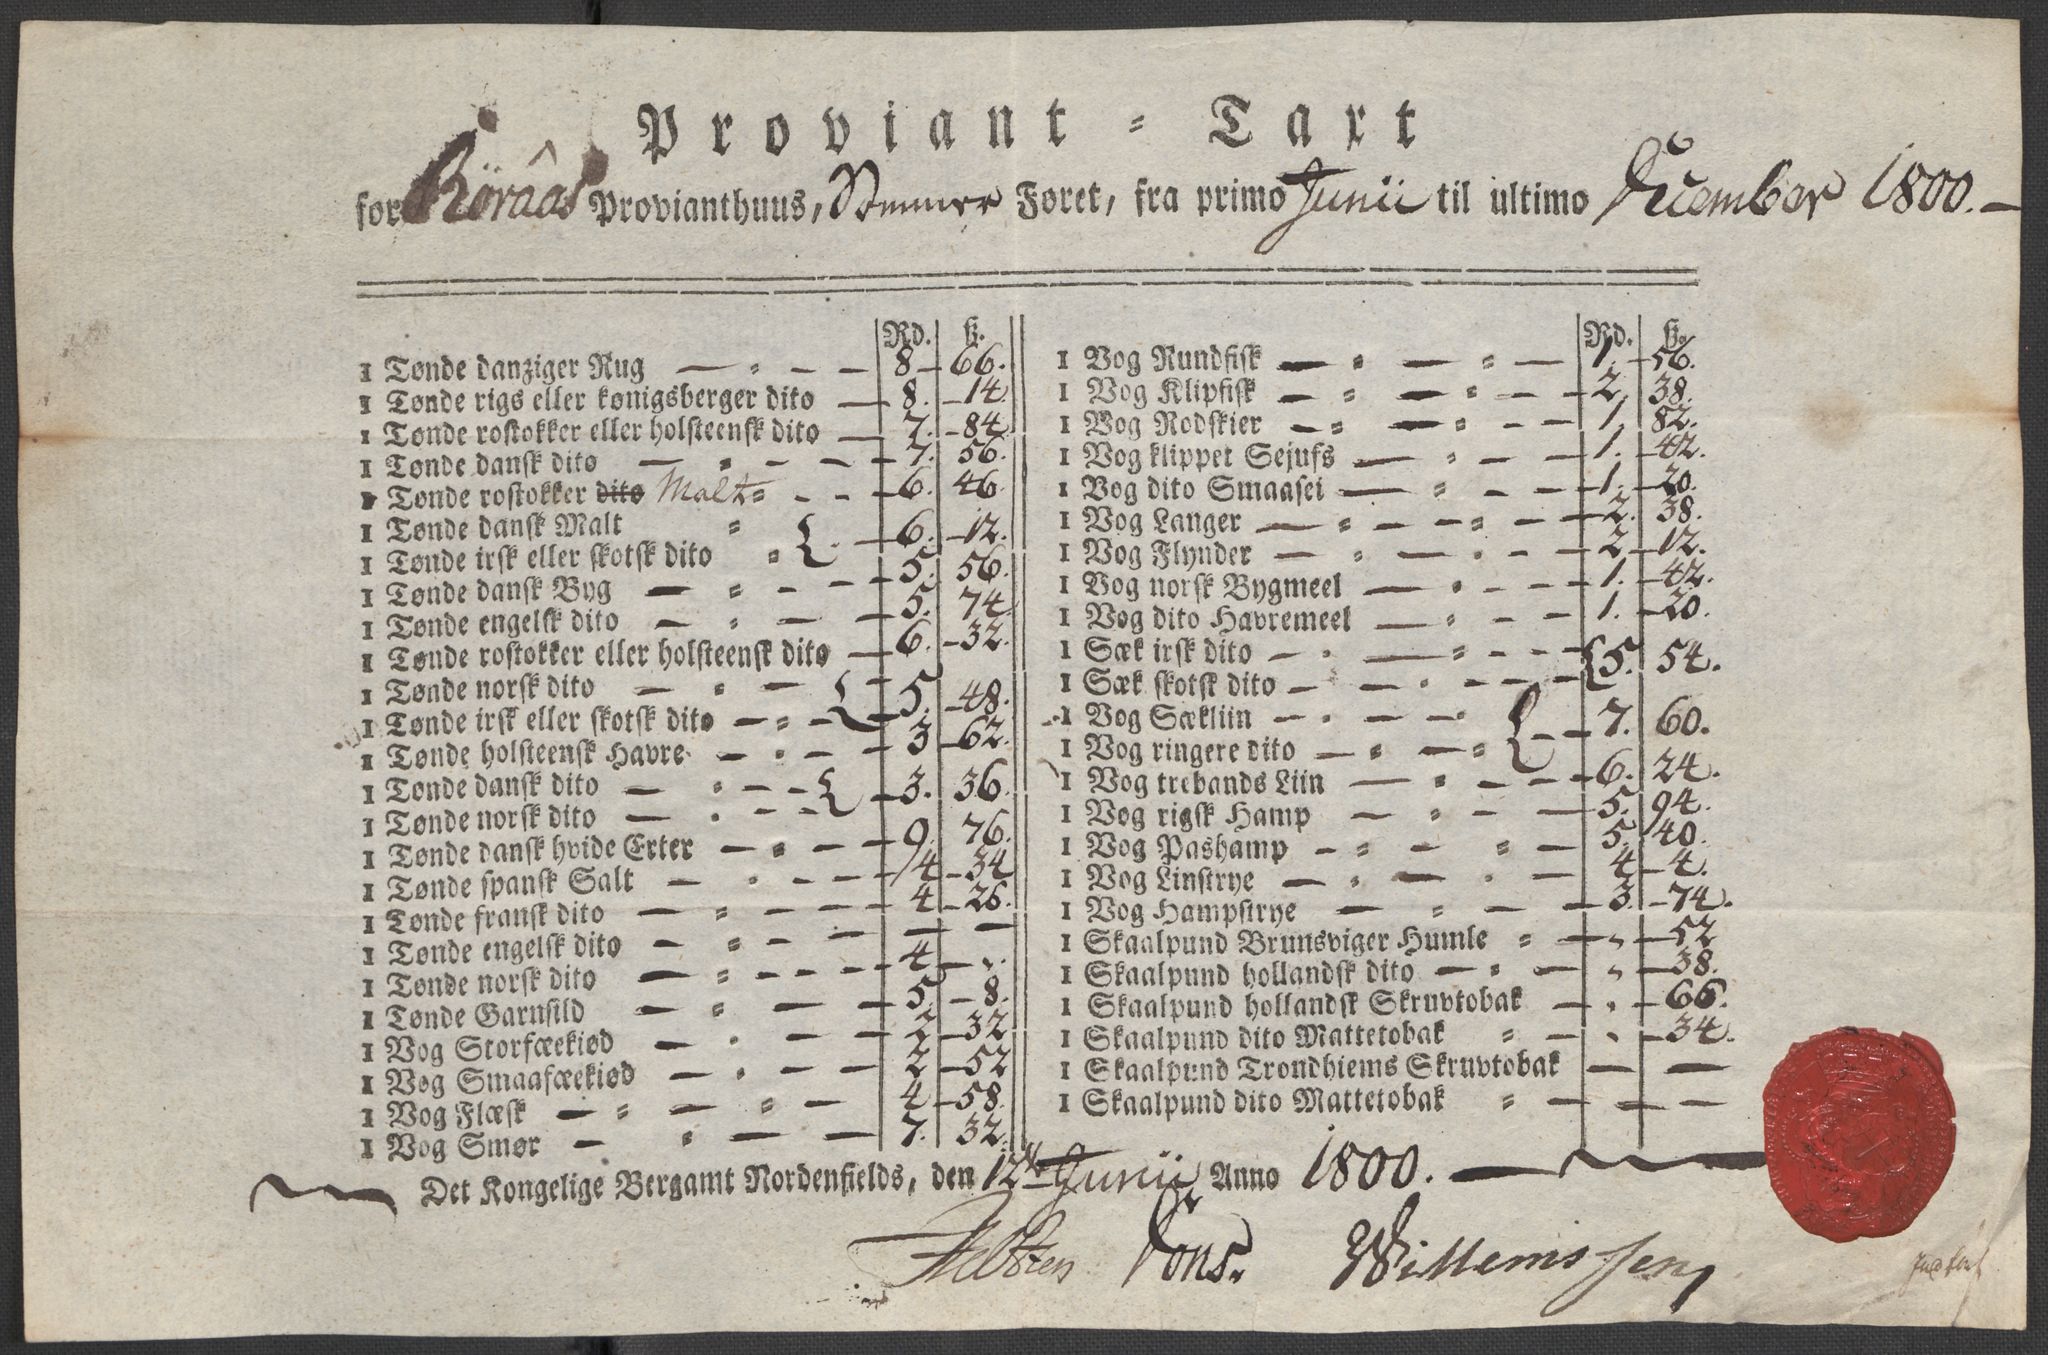 Proviant-Taxt
for Röraas Provianthuus, Sommer Føret, fra primo Junii til ultimo December 1800.
Rd. ß.
1 Tønde danziger Rug 8 66.
1 Tønde rigs eller kønigsberger dito 8. 14
1 Tønde rostokker eller holsteensk dito 7. 84
1 Tønde dansk dito 7. 56.
1 Tønde rostokker dito Malt 6. 46.
1 Tønde dansk Malt { 6. 12.
1 Tønde irsk eller skotsk dito
1 Tønde dansk Byg 5. 56.
1 Tønde engelsk dito 5. 74
1 Tønde rostokker eller holsteensk dito 6. 32.
1 Tønde norsk dito { 5. 48.
1 Tønde irsk eller skotsk dito
1 Tønde holsteensk Havre 3 62.
1 Tønde dansk dito { 3. 36.
1 Tønde norsk dito
1 Tønde dansk hvide Erter 9. 76.
1 Tønde spansk Salt 4 34
1 Tønde fransk dito 4 26.
1 Tønde engelsk dito — —
1 Tønde norsk dito 4 „
1 Tønde Garnsild 5. 8.
1 Vog Storfæekiød 2 32
1 Vog Smaafæekiød 2 52
1 Vog Flæsk 4 58.
1 Vog Smør 7. 32.
Rd. ß.
1 Vog Rundfisk 1. 56.
1 Vog Klipfisk 2, 38.
1 Vog Rodskier 1. 82.
1 Vog klippet Sejufs 1. 42.
1 Vog dito Smaasei 1. 20.
1 Vog Langer 2. 38.
1 Vog Flynder 2 12.
1 Vog norsk Bygmeel 1. 42.
1 Vog dito Havremeel 1. 20.
1 Sæk irsk dito { 5. 54.
1 Sæk skotsk dito
1 Vog Sækliin { 7. 60.
1 Vog ringere dito
1 Vog trebands Liin 6. 24.
1 Vog rigsk Hamp 5. 94.
1 Vog Pashamp 5. 40.
1 Vog Linstrye 4 4.
1 Vog Hampstrye 3. 74.
1 Skaalpund Brunsviger Humle „ 52
1 Skaalpund hollandsk dito „ 38.
1 Skaalpund hollandsk Skruvtobak „ 66.
1 Skaalpund dito Mattetobak „ 34.
1 Skaalpund Trondhiems Skruvtobak — —
1 Skaalpund dito Mattetobak — —
Det Kongelige Bergamt Nordenfields, den 12te Junii Anno 1800.
Dons. Willemssen